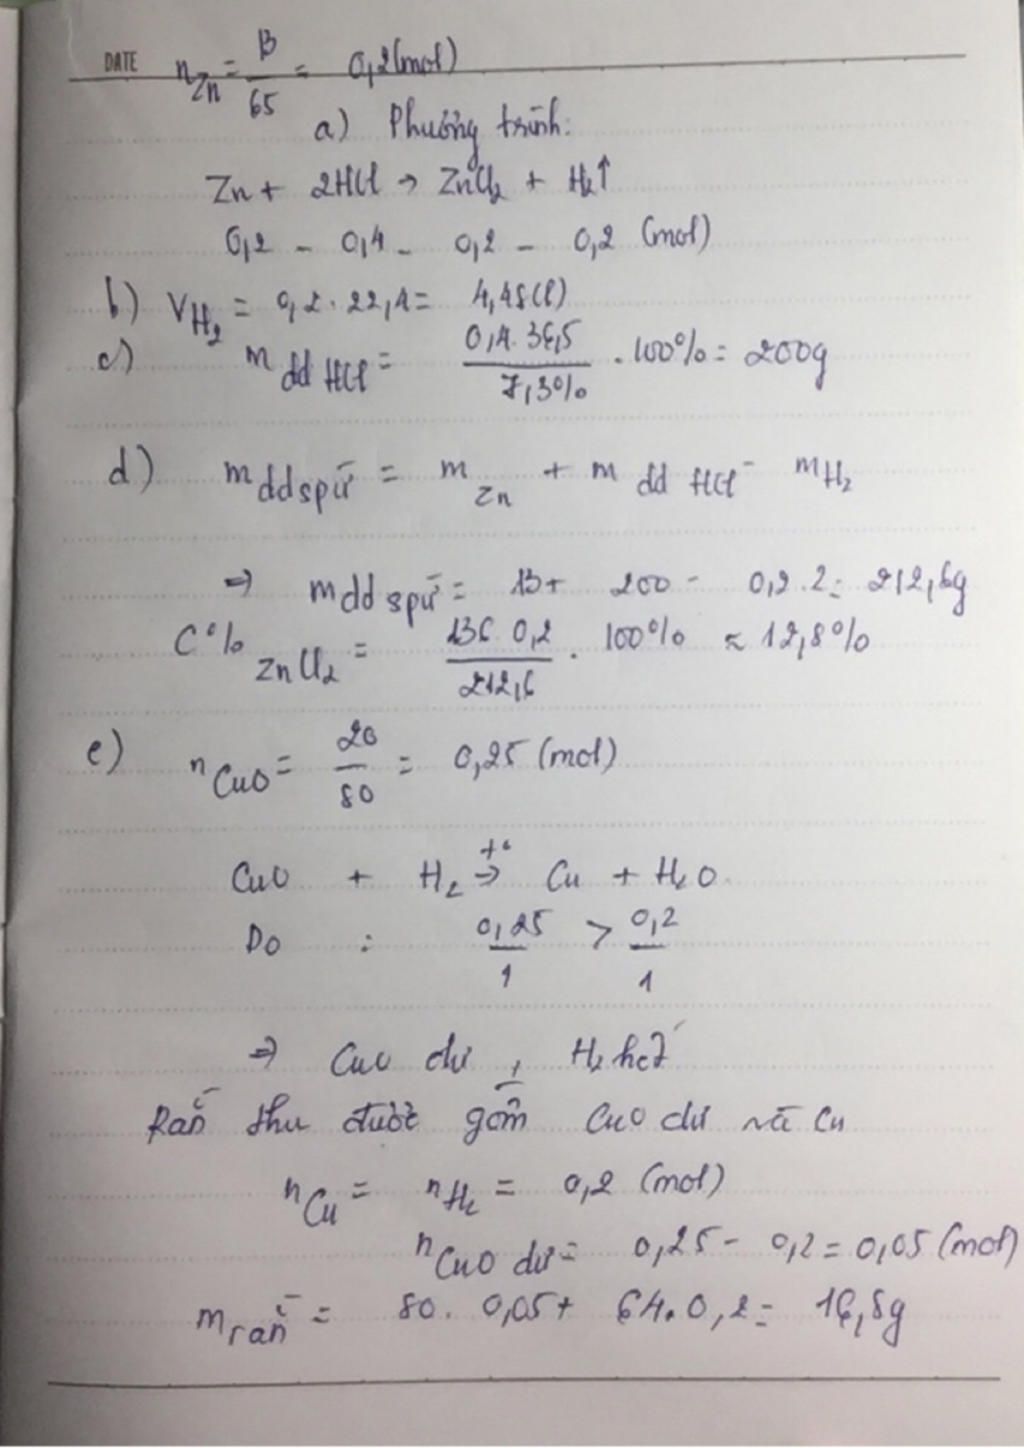 DATE n Zn = 13/65 = 0,2 (mol)
a) Phương trình:
Zn + 2HCl → ZnCl₂ + H₂↑
0,2 - 0,4 - 0,2 - 0,2 (mol)
b) V H₂ = 0,2 . 22,4 = 4,48 (l)
c) m dd HCl = 0,4. 36,5 / 7,3% . 100% = 200g
d) m dd spứ = m Zn + m dd HCl - m H₂
⇒ m dd spứ = 13 + 200 - 0,2 . 2 = 212,6g
C% ZnCl₂ = 136. 0,2 / 212,6 . 100% ≈ 12,8%
e) n CuO = 20/80 = 0,25 (mol)
CuO + H₂ →(t°) Cu + H₂O
Do : 0,25/1 > 0,2/1
⇒ CuO dư , H₂ hết
Rắn thu được gồm CuO dư và Cu
n Cu = n H₂ = 0,2 (mol)
n CuO dư = 0,25 - 0,2 = 0,05 (mol)
m rắn = 80. 0,05 + 64. 0,2 = 16,8g